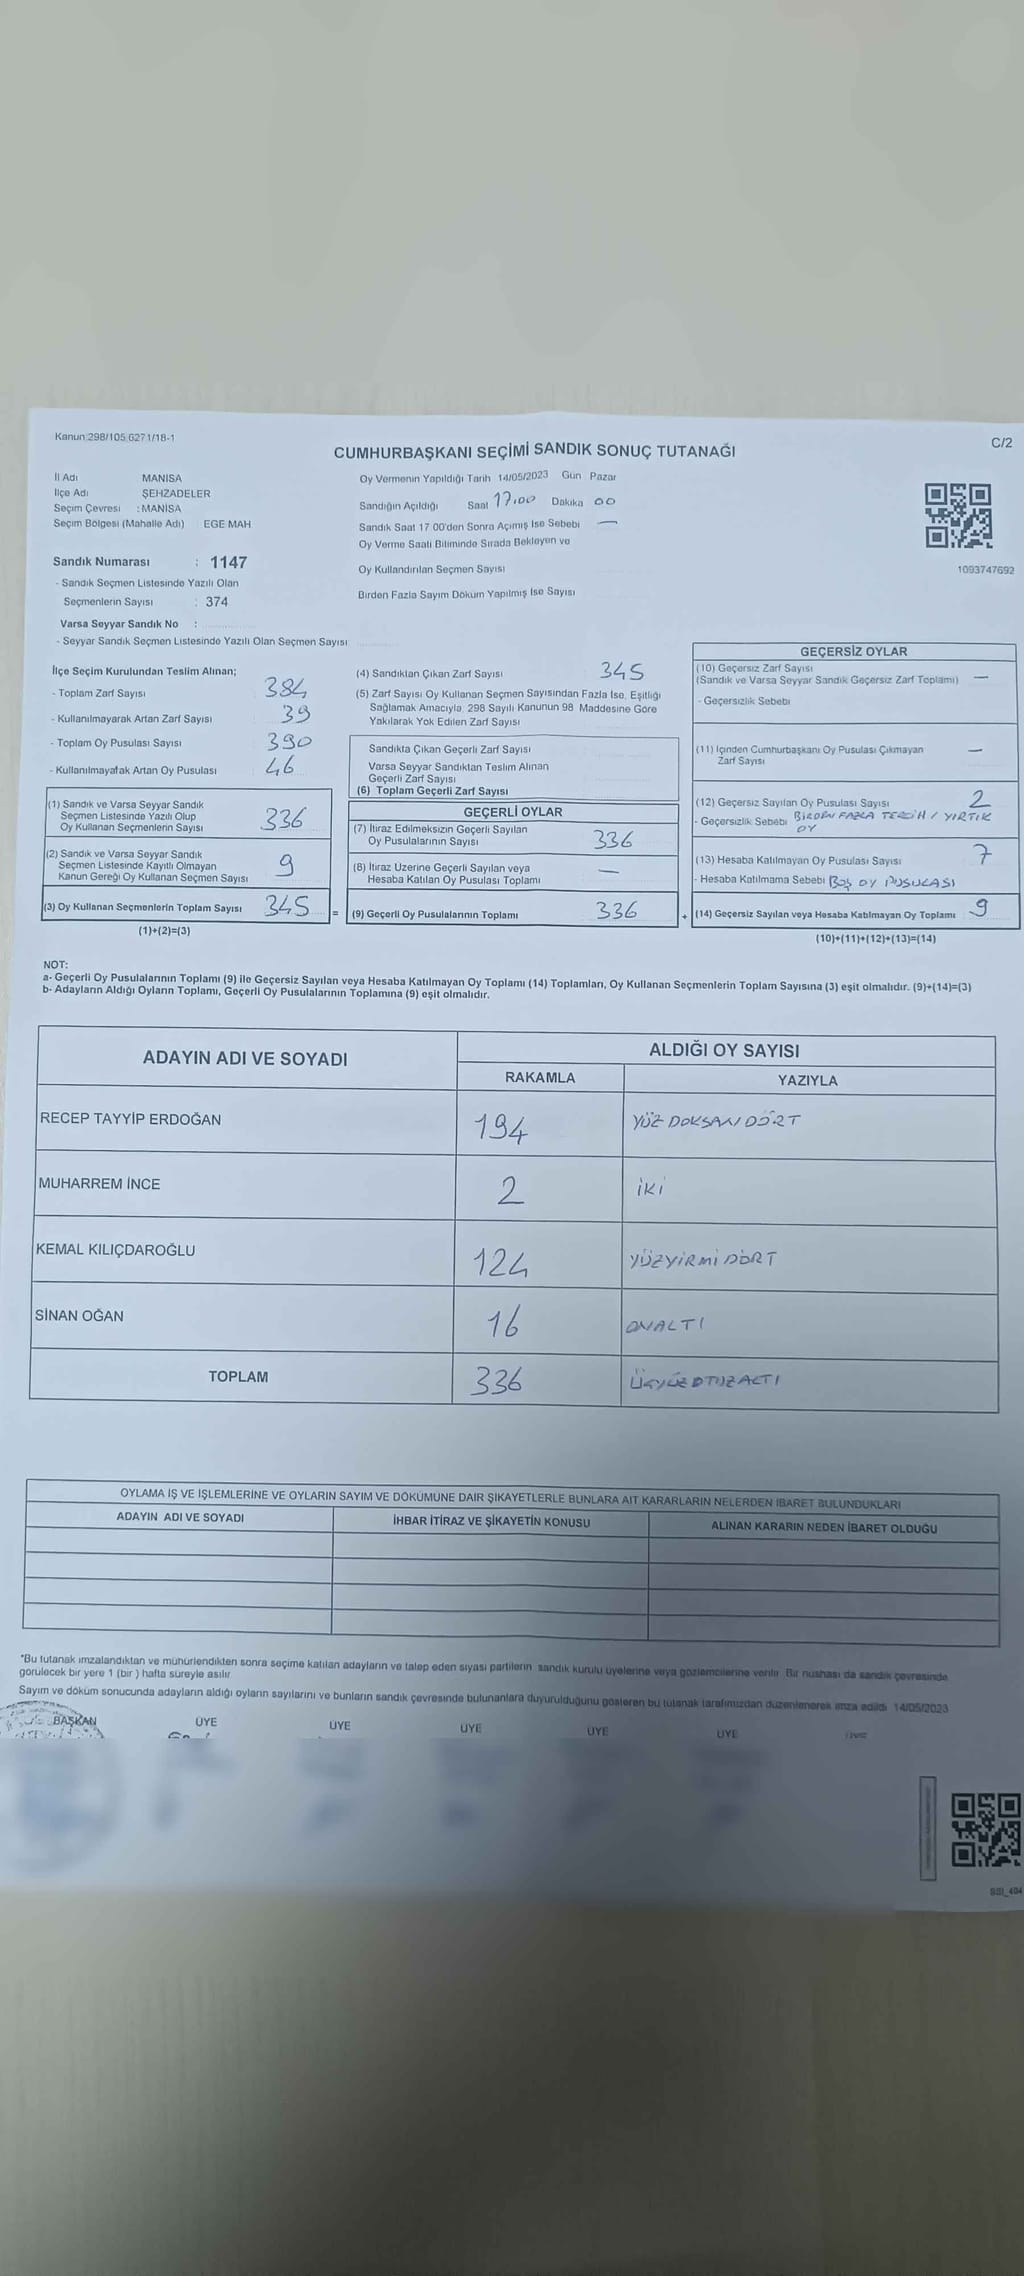 Kanun:298/105,6271/18-1
C/2
CUMHURBAŞKANI SEÇİMİ SANDIK SONUÇ TUTANAĞI
İl Adı MANİSA
İlçe Adı ŞEHZADELER
Seçim Çevresi : MANİSA
Seçim Bölgesi (Mahalle Adı) EGE MAH
Sandık Numarası : 1147
- Sandık Seçmen Listesinde Yazılı Olan
Seçmenlerin Sayısı : 374
Varsa Seyyar Sandık No :
- Seyyar Sandık Seçmen Listesinde Yazılı Olan Seçmen Sayısı
Oy Vermenin Yapıldığı Tarih 14/05/2023 Gün Pazar
Sandığın Açıldığı Saat 17.00 Dakika 00
Sandık Saat 17 00'den Sonra Açımış İse Sebebi —
Oy Verme Saati Bitiminde Sırada Bekleyen ve
Oy Kullandırılan Seçmen Sayısı
Birden Fazla Sayım Döküm Yapılmış İse Sayısı
1093747692
İlçe Seçim Kurulundan Teslim Alınan;
- Toplam Zarf Sayısı 384
- Kullanılmayarak Artan Zarf Sayısı 39
- Toplam Oy Pusulası Sayısı 390
- Kullanılmayarak Artan Oy Pusulası 46
(1) Sandık ve Varsa Seyyar Sandık
Seçmen Listesinde Yazılı Olup
Oy Kullanan Seçmenlerin Sayısı 336
(2) Sandık ve Varsa Seyyar Sandık
Seçmen Listesinde Kayıtlı Olmayan
Kanun Gereği Oy Kullanan Seçmen Sayısı 9
(3) Oy Kullanan Seçmenlerin Toplam Sayısı 345
(1)+(2)=(3)
(4) Sandıktan Çıkan Zarf Sayısı 345
(5) Zarf Sayısı Oy Kullanan Seçmen Sayısından Fazla İse, Eşitliği
Sağlamak Amacıyla, 298 Sayılı Kanunun 98 Maddesine Göre
Yakılarak Yok Edilen Zarf Sayısı
Sandıkta Çıkan Geçerli Zarf Sayısı
Varsa Seyyar Sandıktan Teslim Alınan
Geçerli Zarf Sayısı
(6) Toplam Geçerli Zarf Sayısı
GEÇERLİ OYLAR
(7) İtiraz Edilmeksizin Geçerli Sayılan
Oy Pusulalarının Sayısı 336
(8) İtiraz Üzerine Geçerli Sayılan veya
Hesaba Katılan Oy Pusulası Toplamı —
= (9) Geçerli Oy Pusulalarının Toplamı 336
GEÇERSİZ OYLAR
(10) Geçersiz Zarf Sayısı
(Sandık ve Varsa Seyyar Sandık Geçersiz Zarf Toplamı) —
- Geçersizlik Sebebi
(11) İçinden Cumhurbaşkanı Oy Pusulası Çıkmayan
Zarf Sayısı —
(12) Geçersiz Sayılan Oy Pusulası Sayısı 2
- Geçersizlik Sebebi BİRDEN FAZLA TERCİH / YIRTIK
OY
(13) Hesaba Katılmayan Oy Pusulası Sayısı 7
- Hesaba Katılmama Sebebi BOŞ OY PUSULASI
+ (14) Geçersiz Sayılan veya Hesaba Katılmayan Oy Toplamı 9
(10)+(11)+(12)+(13)=(14)
NOT:
a- Geçerli Oy Pusulalarının Toplamı (9) ile Geçersiz Sayılan veya Hesaba Katılmayan Oy Toplamı (14) Toplamları, Oy Kullanan Seçmenlerin Toplam Sayısına (3) eşit olmalıdır. (9)+(14)=(3)
b- Adayların Aldığı Oyların Toplamı, Geçerli Oy Pusulalarının Toplamına (9) eşit olmalıdır.
ADAYIN ADI VE SOYADI ALDIĞI OY SAYISI
RAKAMLA YAZIYLA
RECEP TAYYİP ERDOĞAN 194 YÜZ DOKSAN DÖRT
MUHARREM İNCE 2 İKİ
KEMAL KILIÇDAROĞLU 124 YÜZYİRMİ DÖRT
SİNAN OĞAN 16 ONALTI
TOPLAM 336 ÜÇYÜZ OTUZ ALTI
OYLAMA İŞ VE İŞLEMLERİNE VE OYLARIN SAYIM VE DÖKÜMÜNE DAİR ŞİKAYETLERLE BUNLARA AİT KARARLARIN NELERDEN İBARET BULUNDUKLARI
ADAYIN ADI VE SOYADI İHBAR İTİRAZ VE ŞİKAYETİN KONUSU ALINAN KARARIN NEDEN İBARET OLDUĞU
*Bu tutanak imzalandıktan ve mühürlendikten sonra seçime katılan adayların ve talep eden siyasi partilerin sandık kurulu üyelerine veya gözlemcilerine verilir. Bir nüshası da sandık çevresinde
görülecek bir yere 1 (bir ) hafta süreyle asılır
Sayım ve döküm sonucunda adayların aldığı oyların sayılarını ve bunların sandık çevresinde bulunanlara duyurulduğunu gösteren bu tutanak tarafımızdan düzenlenerek imza edildi 14/05/2023
BAŞKAN ÜYE ÜYE ÜYE ÜYE ÜYE ÜYE